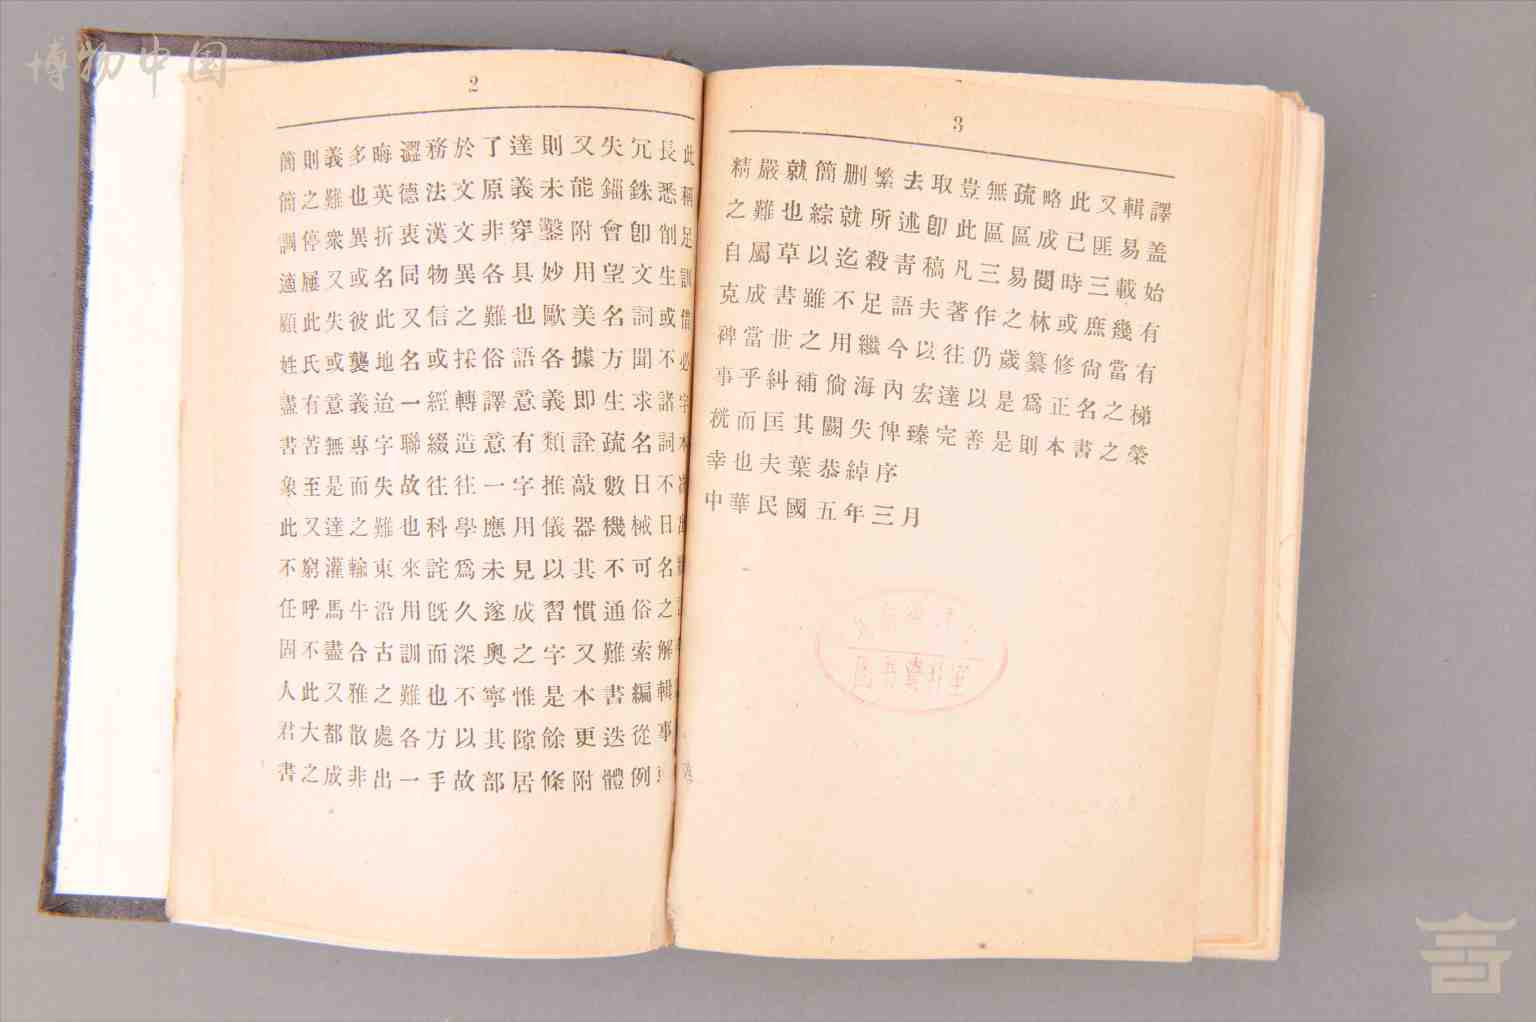 博物中国
2
簡則義多晦澀務於了達則又失冗長此
簡之難也英德法文原義未能錙銖悉稱
調停衆異折衷漢文非穿鑿附會卽削足
適屨又或名同物異各具妙用望文生訓
顧此失彼此又信之難也歐美名詞或借
姓氏或襲地名或採俗語各據方聞不必
盡有意義迨一經轉譯意義即生求諸字
書苦無專字聯綴造意有類詮疏名詞
象至是而失故往往一字推敲數日不
此又達之難也科學應用儀器機械日
不窮灌輸東來詫爲未見以其不可名
任呼馬牛沿用旣久遂成習慣通俗之
固不盡合古訓而深奧之字又難索解
人此又雅之難也不寧惟是本書編輯
君大都散處各方以其隙餘更迭從事
書之成非出一手故部居條附體例
3
精嚴就簡删繁去取豈無疏略此又輯譯
之難也綜就所述卽此區區成已匪易盖
自屬草以迄殺青稿凡三易閱時三載始
克成書雖不足語夫著作之林或庶幾有
裨當世之用繼今以往仍歲纂修尙當有
事乎糾補倘海內宏達以是爲正名之梯
桄而匡其闕失俾臻完善是則本書之榮
幸也夫葉恭綽序
中華民國五年三月